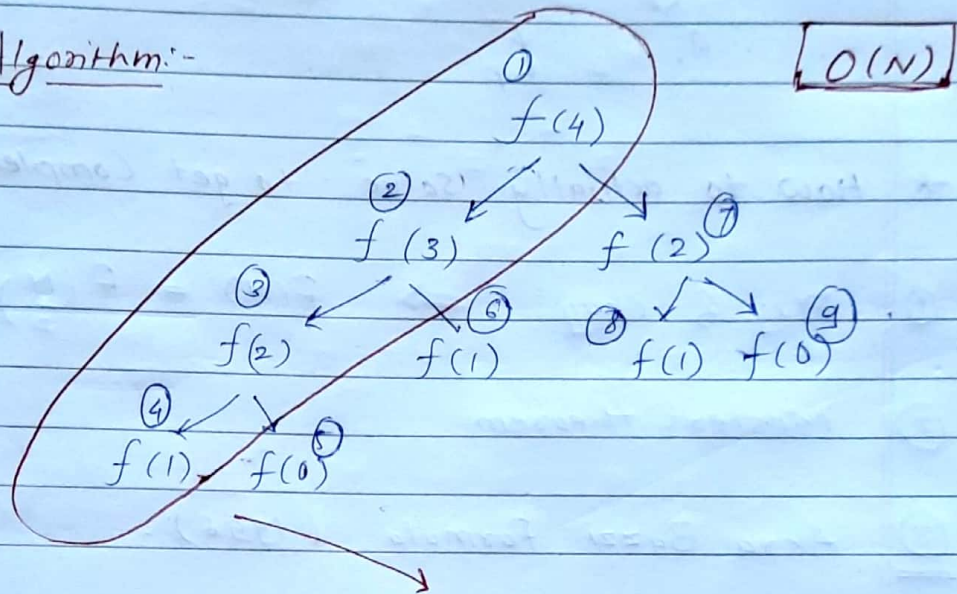 Algorithm:-
O(N)
①
f(4)
②
f(3)
f(2) ⑦
③
f(2)
⑥
f(1)
⑧
f(1)
f(0) ⑨
④
f(1)
f(0) ⑤